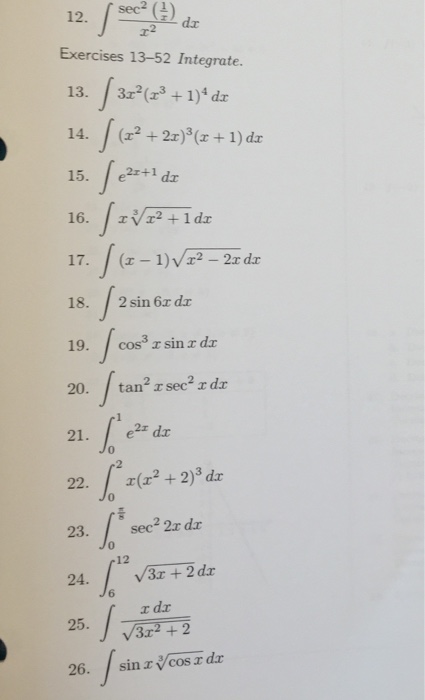 12. ∫ sec² (1/x) / x² dx
Exercises 13–52 Integrate.
13. ∫ 3x²(x³ + 1)⁴ dx
14. ∫ (x² + 2x)³(x + 1) dx
15. ∫ e²ˣ⁺¹ dx
16. ∫ x ∛(x² + 1) dx
17. ∫ (x − 1)√(x² − 2x) dx
18. ∫ 2 sin 6x dx
19. ∫ cos³ x sin x dx
20. ∫ tan² x sec² x dx
21. ∫₀¹ e²ˣ dx
22. ∫₀² x(x² + 2)³ dx
23. ∫₀^(π/8) sec² 2x dx
24. ∫₆¹² √(3x + 2) dx
25. ∫ x dx / √(3x² + 2)
26. ∫ sin x ∛(cos x) dx